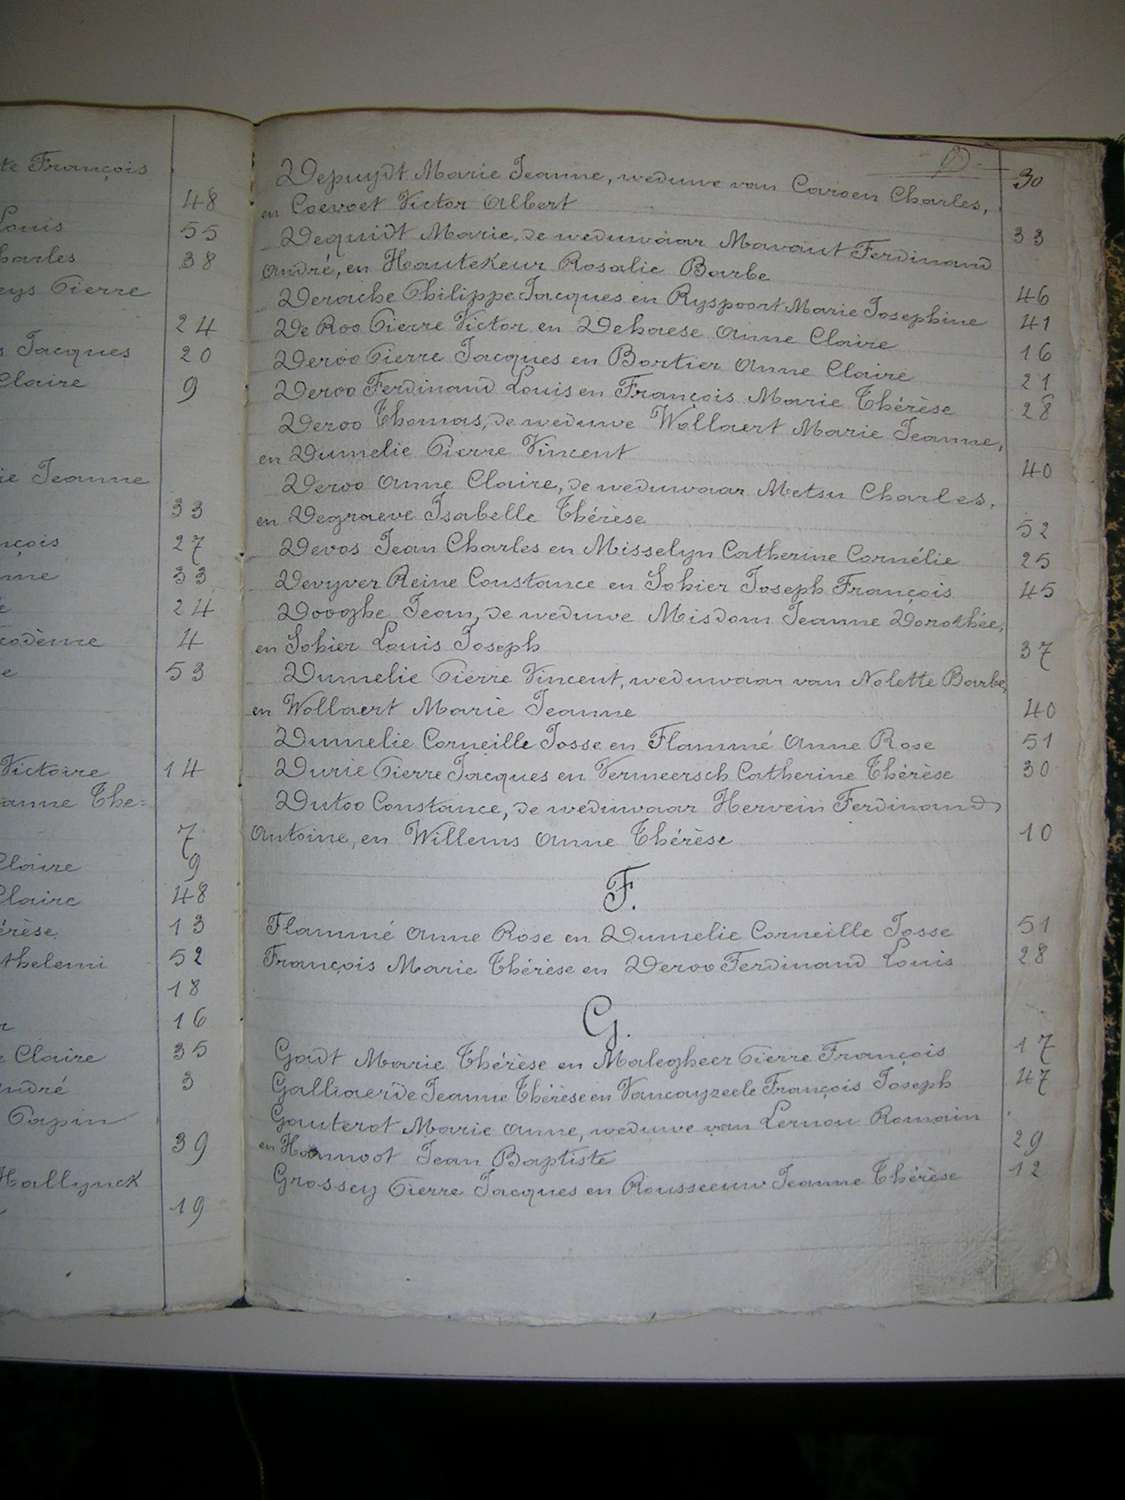 te François
48
Louis
55
harles
38
eys Pierre
24
s Jacques
20
Claire
9
ie Jeanne
33
nçois
27
nne
33
24
codème
4
e
53
Victoire
14
anne Thé=
7
Claire
9
Claire
48
érèse
13
thelemi
52
18
r
16
e Claire
35
ndré
3
Papin
39
Hallynck
19
D.
Depuydt Marie Jeanne, weduwe van Caroen Charles,
30
en Coevoet Victor Albert
Dequidt Marie, de weduwaar Mavaut Ferdinand
33
André, en Hautekeur Rosalie Barbe
Derache Philippe Jacques en Ryspoort Marie Josephine
46
De Roo Pierre Victor en Dehaese Anne Claire
41
Deroo Pierre Jacques en Bortier Anne Claire
16
Deroo Ferdinand Louis en François Marie Thérèse
21
28
Deroo Thomas, de weduwe Wollaert Marie Jeanne,
en Dumelie Pierre Vincent
40
Deroo Anne Claire, de weduwaar Metsu Charles,
en Degraeve Isabelle Thérèse
52
Devos Jean Charles en Misselyn Catherine Cornélie
25
Devyver Reine Constance en Sohier Joseph François
45
Dooghe Jean, de weduwe Misdom Jeanne Dorothée,
en Sohier Louis Joseph
37
Dumelie Pierre Vincent, weduwaar van Nolette Barbe,
en Wollaert Marie Jeanne
40
Dumelie Corneille Josse en Flammé Anne Rose
51
Durie Pierre Jacques en Vermeersch Catherine Thérèse
30
Dutoo Constance, de weduwaar Hervein Ferdinand
Antoine, en Willems Anne Thérèse
10
F.
Flammé Anne Rose en Dumelie Corneille Josse
51
François Marie Thérèse en Deroo Ferdinand Louis
28
G.
Gadt Marie Thérèse en Malegheer Pierre François
17
Galliaerde Jeanne Thérèse en Vancayzeele François Joseph
47
Gauterot Marie Anne, weduwe van Lernou Romain
en Hannoot Jean Baptiste
29
Grossey Pierre Jacques en Rousseeuw Jeanne Thérèse
12